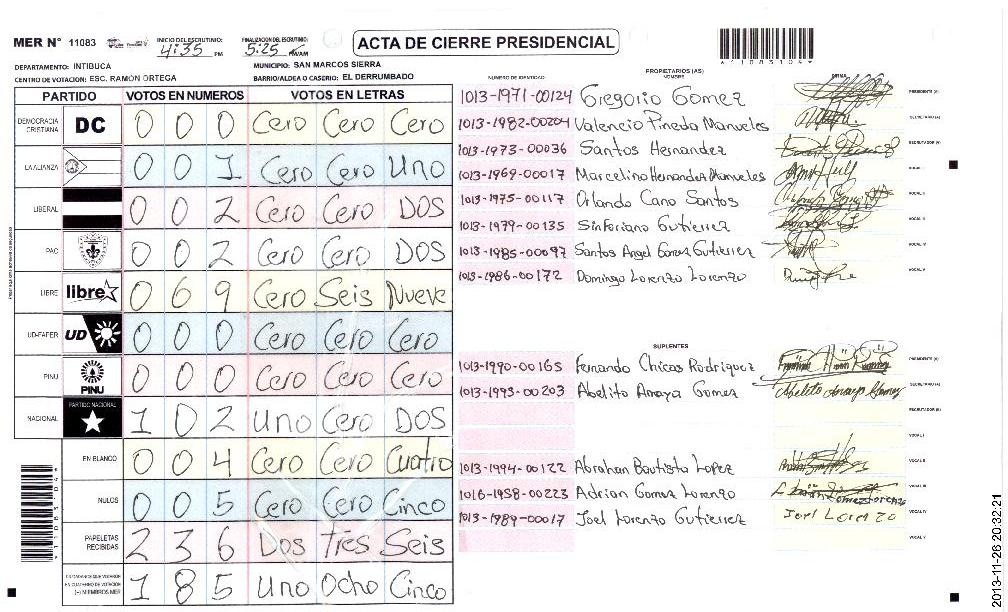 MER N° 11083 INICIO DEL ESCRUTINIO: 4:35 PM FINALIZACION DEL ESCRUTINIO: 5:25 PM/AM
ACTA DE CIERRE PRESIDENCIAL
*11083104*
DEPARTAMENTO: INTIBUCA MUNICIPIO: SAN MARCOS SIERRA
CENTRO DE VOTACION: ESC. RAMÓN ORTEGA BARRIO/ALDEA O CASERIO: EL DERRUMBADO
PARTIDO VOTOS EN NUMEROS VOTOS EN LETRAS
DEMOCRACIA CRISTIANA DC 0 0 0 Cero Cero Cero
LA ALIANZA 0 0 1 Cero Cero Uno
LIBERAL 0 0 2 Cero Cero DOS
PAC 0 0 2 Cero Cero DOS
LIBRE libre 0 6 9 Cero Seis Nueve
UD-FAPER UD 0 0 0 Cero Cero Cero
PINU PINU 0 0 0 Cero Cero Cero
NACIONAL PARTIDO NACIONAL 1 0 2 Uno Cero DOS
EN BLANCO 0 0 4 Cero Cero Cuatro
NULOS 0 0 5 Cero Cero Cinco
PAPELETAS RECIBIDAS 2 3 6 Dos Tres Seis
CIUDADANOS QUE VOTARON EN CUADERNO DE VOTACION (-) MIEMBROS MER 1 8 5 Uno Ocho Cinco
PROPIETARIOS (AS)
NUMERO DE IDENTIDAD NOMBRE FIRMA
1013-1971-00124 Gregorio Gomez PRESIDENTE (A)
1013-1982-00204 Valencio Pineda Manueles SECRETARIO (A)
1013-1973-00036 Santos Hernandez ESCRUTADOR (A)
1013-1969-00017 Marcelino Hernandez Manueles VOCAL I
1013-1975-00117 Orlando Cano Santos VOCAL II
1013-1979-00135 Sinforiano Gutierrez VOCAL III
1013-1985-00097 Santos Angel Gomez Gutierrez VOCAL IV
1013-1986-00172 Domingo Lorenzo Lorenzo VOCAL V
SUPLENTES
1013-1990-00165 Fernando Chicas Rodriguez PRESIDENTE (A)
1013-1993-00203 Abelito Amaya Gomez Abelito Amaya Gomez SECRETARIO (A)
ESCRUTADOR (A)
VOCAL I
1013-1994-00122 Abrahan Bautista Lopez VOCAL II
1016-1958-00223 Adrian Gomez Lorenzo Adrian Gomez Lorenzo VOCAL III
1013-1989-00017 Joel Lorenzo Gutierrez Joel Lorenzo VOCAL IV
VOCAL V
2013-11-26 20:32:21